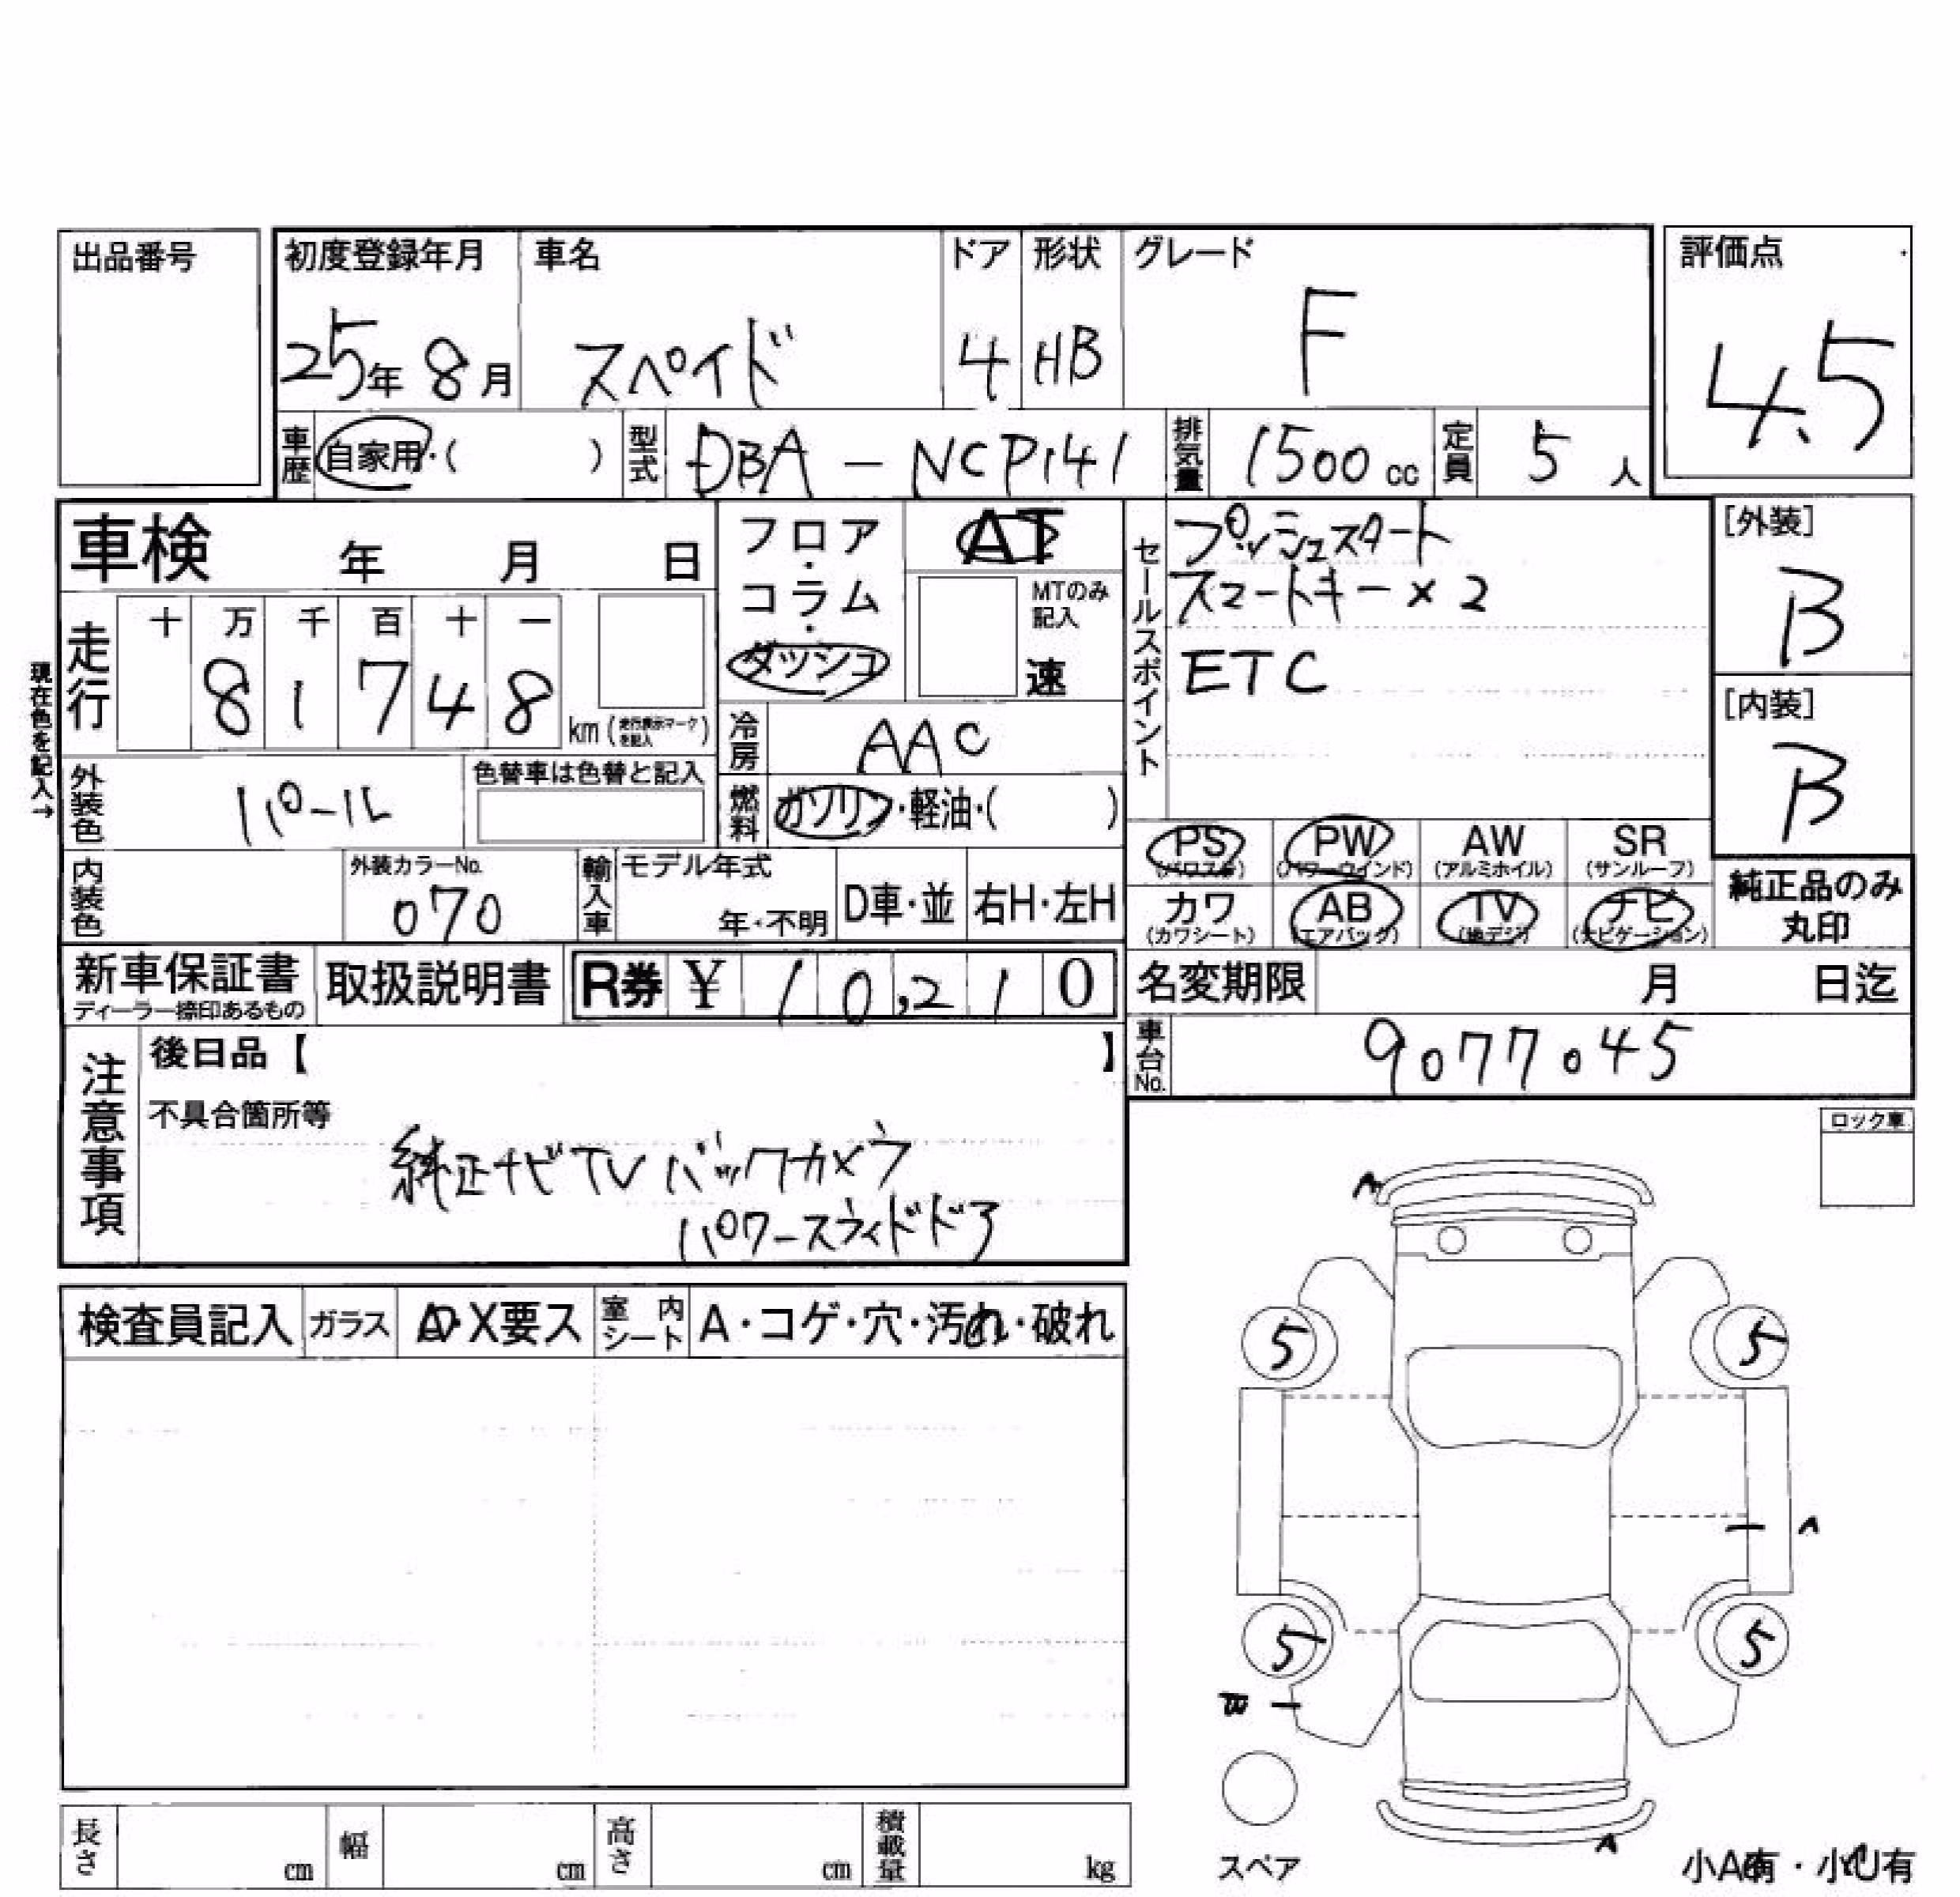 出品番号
初度登録年月 車名 ドア 形状 グレード 評価点
25年 8月 スペイド 4 HB F 4.5
車歴 自家用・( ) 型式 DBA-NCP141 排気量 1500cc 定員 5人
車検 年 月 日
フロア・コラム・ダッシュ
AT
MTのみ記入
速
現在色を記入→
走行 十 万 千 百 十 一
8 1 7 4 8 km (走行表示マークを記入)
冷房 AAC
外装色 パール 色替車は色替と記入
燃料 ガソリン・軽油・( )
内装色 外装カラーNo. 070
輸入車 モデル年式 年・不明 D車・並 右H・左H
セールスポイント
プッシュスタート
スマートキー×2
ETC
[外装]
B
[内装]
B
PS (パワステ) PW (パワーウインド) AW (アルミホイル) SR (サンルーフ)
カワ (カワシート) AB (エアバッグ) TV (地デジ) ナビ (ナビゲーション)
純正品のみ
丸印
新車保証書 取扱説明書 R券 ¥ 10,210
ディーラー捺印あるもの
名変期限 月 日迄
車台No. 9077045
注意事項
後日品【 】
不具合箇所等
純正ナビTV バックカメラ
パワースライドドア
ロック車
検査員記入 ガラス A・X要ス 室内シート A・コゲ・穴・汚れ・破れ
A
5 5
A
5 5
A
スペア
小A有・小U有
長さ cm 幅 cm 高さ cm 積載量 kg